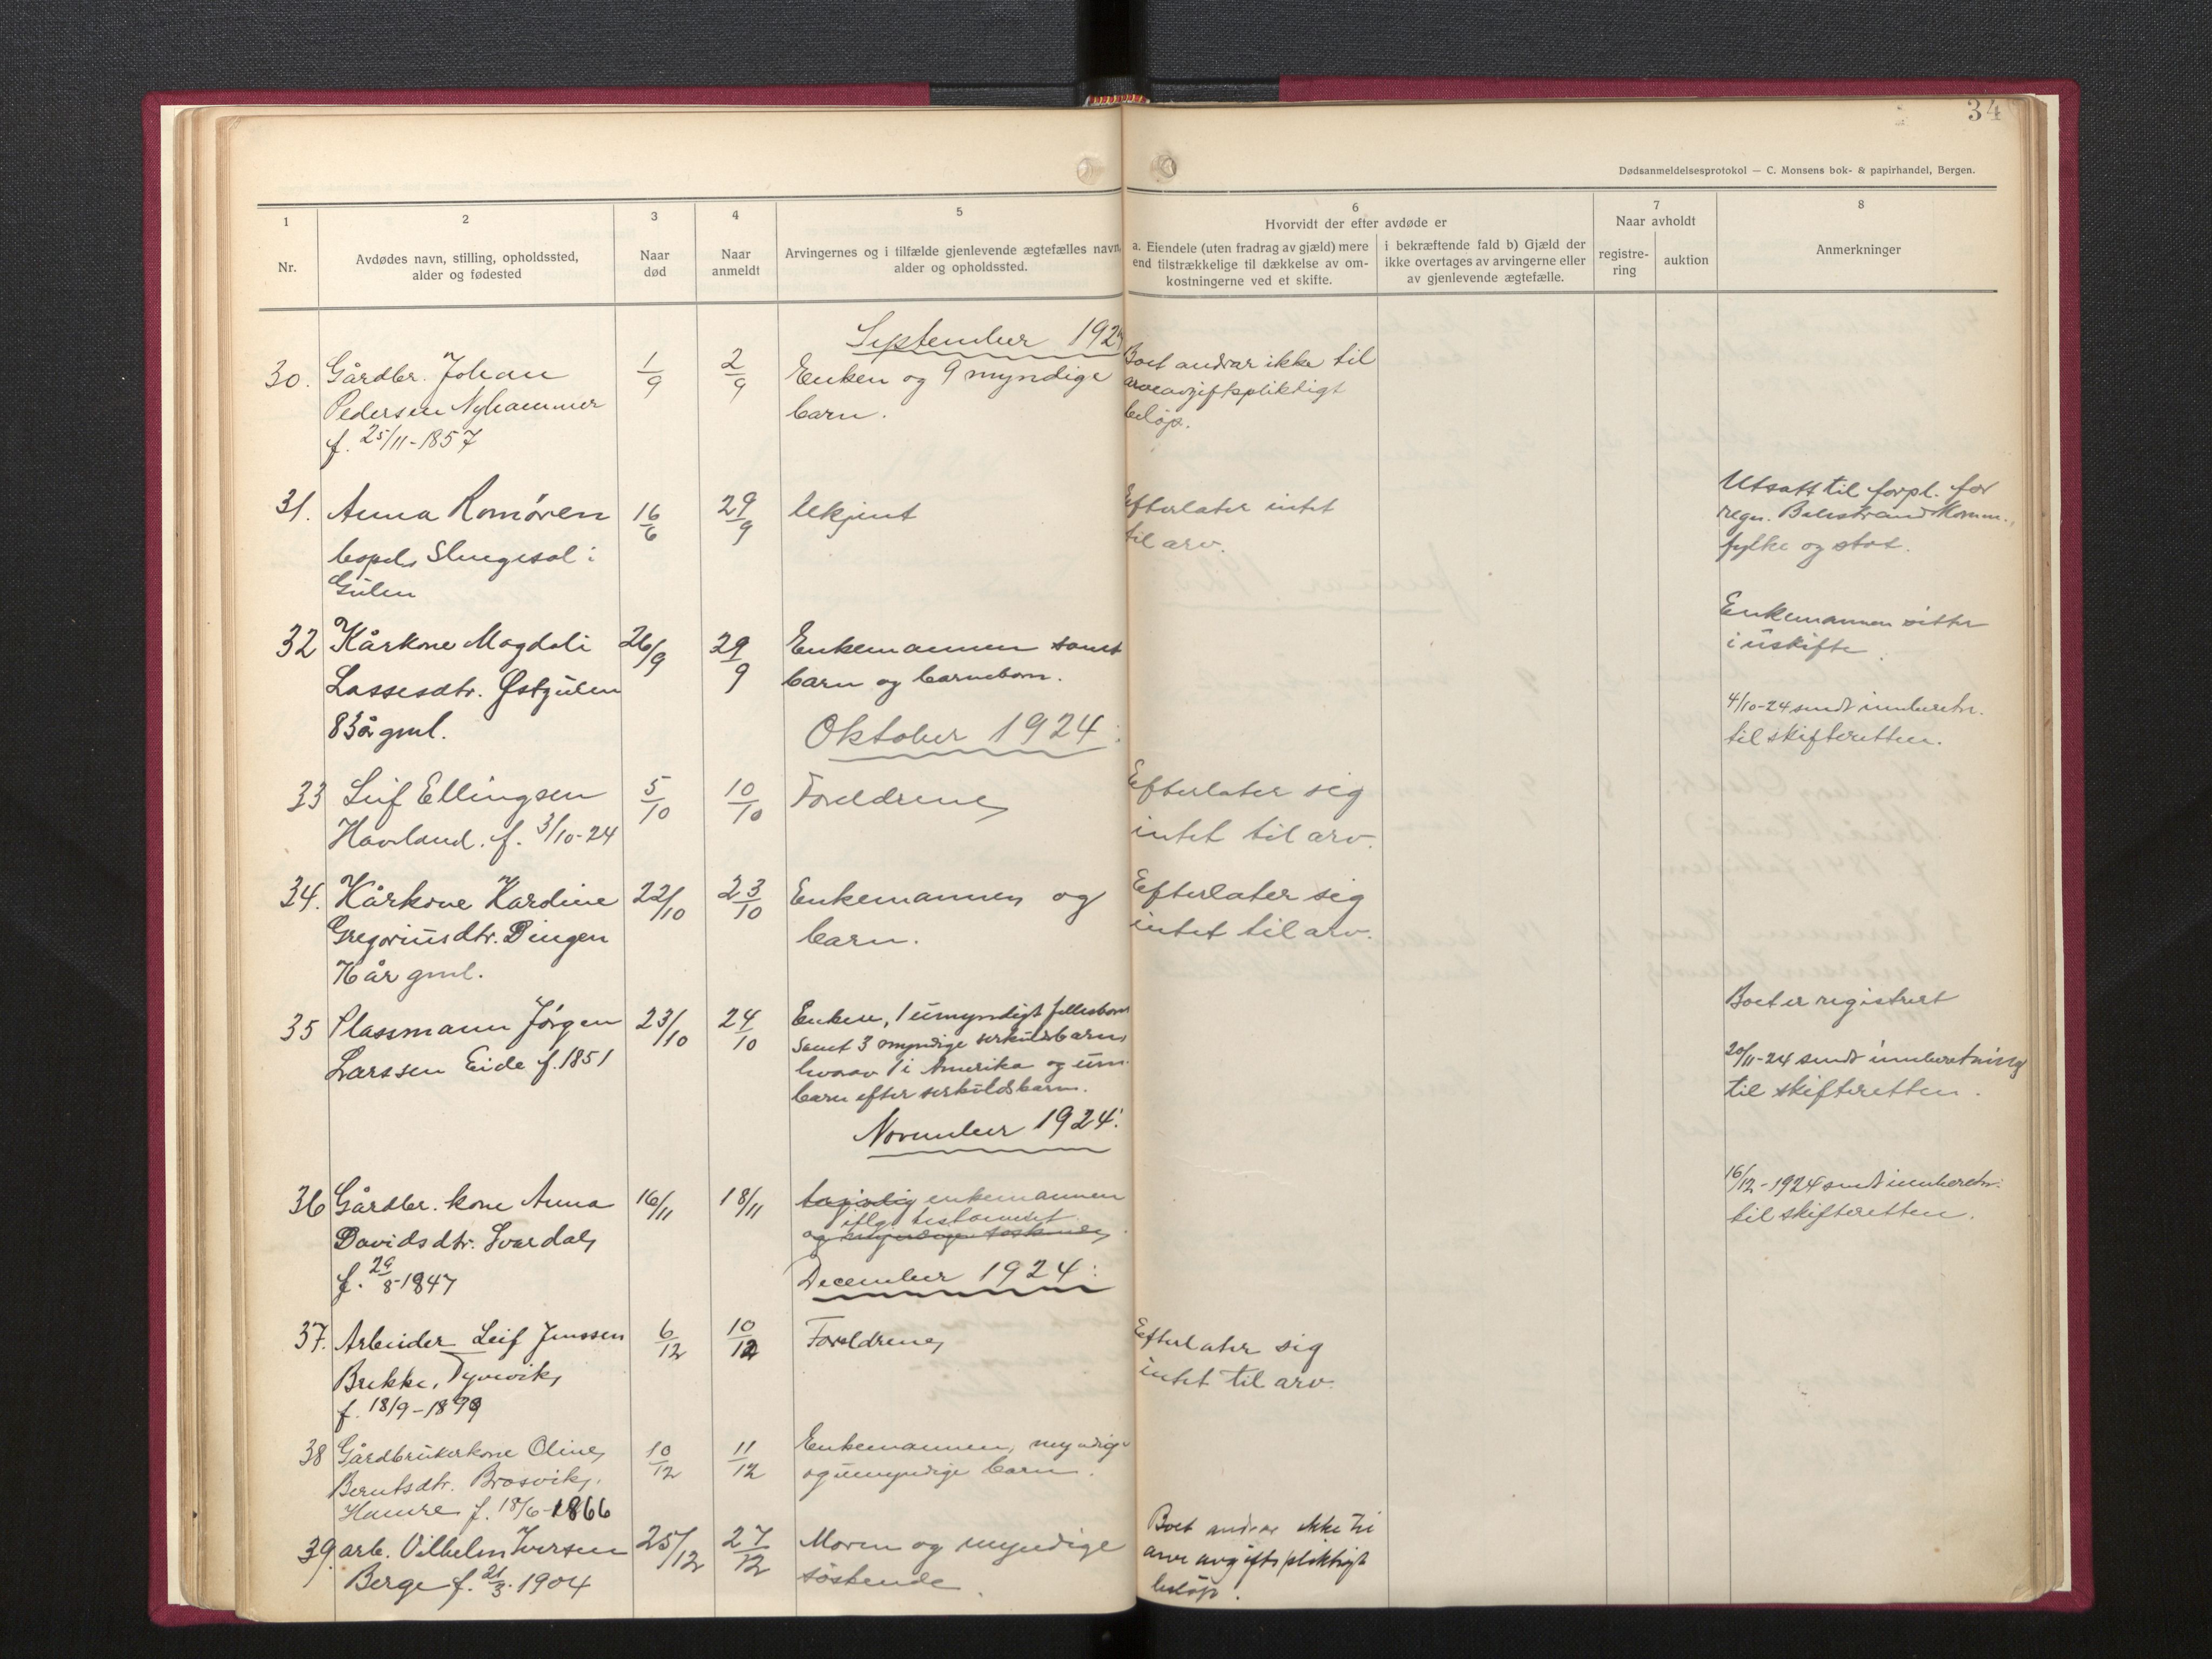 34
Dødsanmeldelsesprotokol — C. Monsens bok- & papirhandel, Bergen.
1
Nr.
2
Avdødes navn, stilling, opholdssted,
alder og fødested
3
Naar
død
4
Naar
anmeldt
5
Arvingernes og i tilfælde gjenlevende ægtefælles navn,
alder og opholdssted.
6
Hvorvidt der efter avdøde er
a. Eiendele (uten fradrag av gjæld) mere
end tilstrækkelige til dækkelse av om-
kostningerne ved et skifte.
i bekræftende fald b) Gjæld der
ikke overtages av arvingerne eller
av gjenlevende ægtefælle.
7
Naar avholdt
registre-
ring
auktion
8
Anmerkninger
September 1924
30. Gårdbr. Johan
Pedersen Nyhammer
f. 25/11-1857
1/9
2/9
Enken og 9 myndige
barn.
Boet andrar ikke til
arveavgiftspliktigt
beløp.
31. Anna Romøren
bopel Slengesol i
Gulen
16/6
29/9
Ukjent
Efterlater intet
til arv.
Utsatt til forpl. for
regn. Balestrand Komm.,
fylke og stat.
32 Kårkone Magdali
Lassesdtr. Østgulen
83 år gml.
26/9
29/9
Enkemannen samt
barn og barnebarn.
Enkemannen sitter
i uskifte.
4/10-24 sendt innberetn.
til skifteretten.
Oktober 1924:
33 Leif Ellingsen
Havland. f. 3/10-24
5/10
10/10
Foreldrene
Efterlater sig
intet til arv.
34. Kårkone Kardine
Gregoriusdtr. Dingen
76 år gml.
22/10
23/10
Enkemannen og
barn.
Efterlater sig
intet til arv.
35 Plassmann Jörgen
Larssen Eide f. 1851
23/10
24/10
Enken, 1 umyndigt fellesbarn
samt 3 myndige serkuldbarn,
hvorav 1 i Amerika og um.
barn efter serkuldsbarn.
Boet er registrert
20/11-24 sendt innberetning
til skifteretten.
November 1924:
36 Gårdbr. kone Anna
Davidsdtr. Svardal,
f. 29/8-1847
16/11
18/11
enkemannen
iflg. testament
og myndige søskende
16/12-1924 sendt innberetn.
til skifteretten.
December 1924:
37. Arbeider Leif Jenssen
Brekke, Tyvevik,
f. 18/9-1899
6/12
10/12
Foreldrene,
Efterlater sig
intet til arv.
38 Gårdbrukerkone Oline,
Berntsdtr. Brosvik,
Hamre f. 18/6-1866
10/12
11/12
Enkemannen, myndige
og umyndige barn.
39. arb. Vilhelm Iversen
Berge f. 21/3-1904
25/12
27/12
Moren og myndige
søskende.
Boet andrar ikke til
arveavgiftspliktigt
beløp.